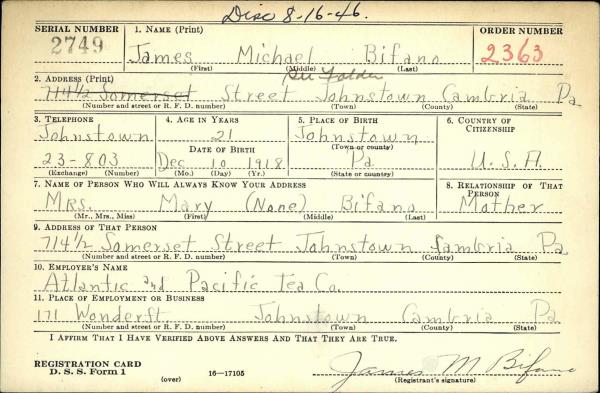 Disc 8-16-46.
SERIAL NUMBER 1. NAME (Print) ORDER NUMBER
2749 James Michael Bifano 2363
(First) (Middle) (Last)
See Folder
2. ADDRESS (Print)
714½ Somerset Street Johnstown Cambria Pa
(Number and street or R. F. D. number) (Town) (County) (State)
3. TELEPHONE 4. AGE IN YEARS 5. PLACE OF BIRTH 6. COUNTRY OF CITIZENSHIP
Johnstown 21 Johnstown
DATE OF BIRTH (Town or county)
23-803 Dec 10 1918 Pa U.S.A.
(Exchange) (Number) (Mo.) (Day) (Yr.) (State or country)
7. NAME OF PERSON WHO WILL ALWAYS KNOW YOUR ADDRESS 8. RELATIONSHIP OF THAT PERSON
Mrs. Mary (None) Bifano Mother
(Mr., Mrs., Miss) (First) (Middle) (Last)
9. ADDRESS OF THAT PERSON
714½ Somerset Street Johnstown Cambria Pa
(Number and street or R. F. D. number) (Town) (County) (State)
10. EMPLOYER'S NAME
Atlantic and Pacific Tea Co.
11. PLACE OF EMPLOYMENT OR BUSINESS
171 Wonder St. Johnstown Cambria Pa
(Number and street or R. F. D. number) (Town) (County) (State)
I AFFIRM THAT I HAVE VERIFIED ABOVE ANSWERS AND THAT THEY ARE TRUE.
REGISTRATION CARD
D. S. S. Form 1 (over) 16—17105 James M Bifano
(Registrant's signature)